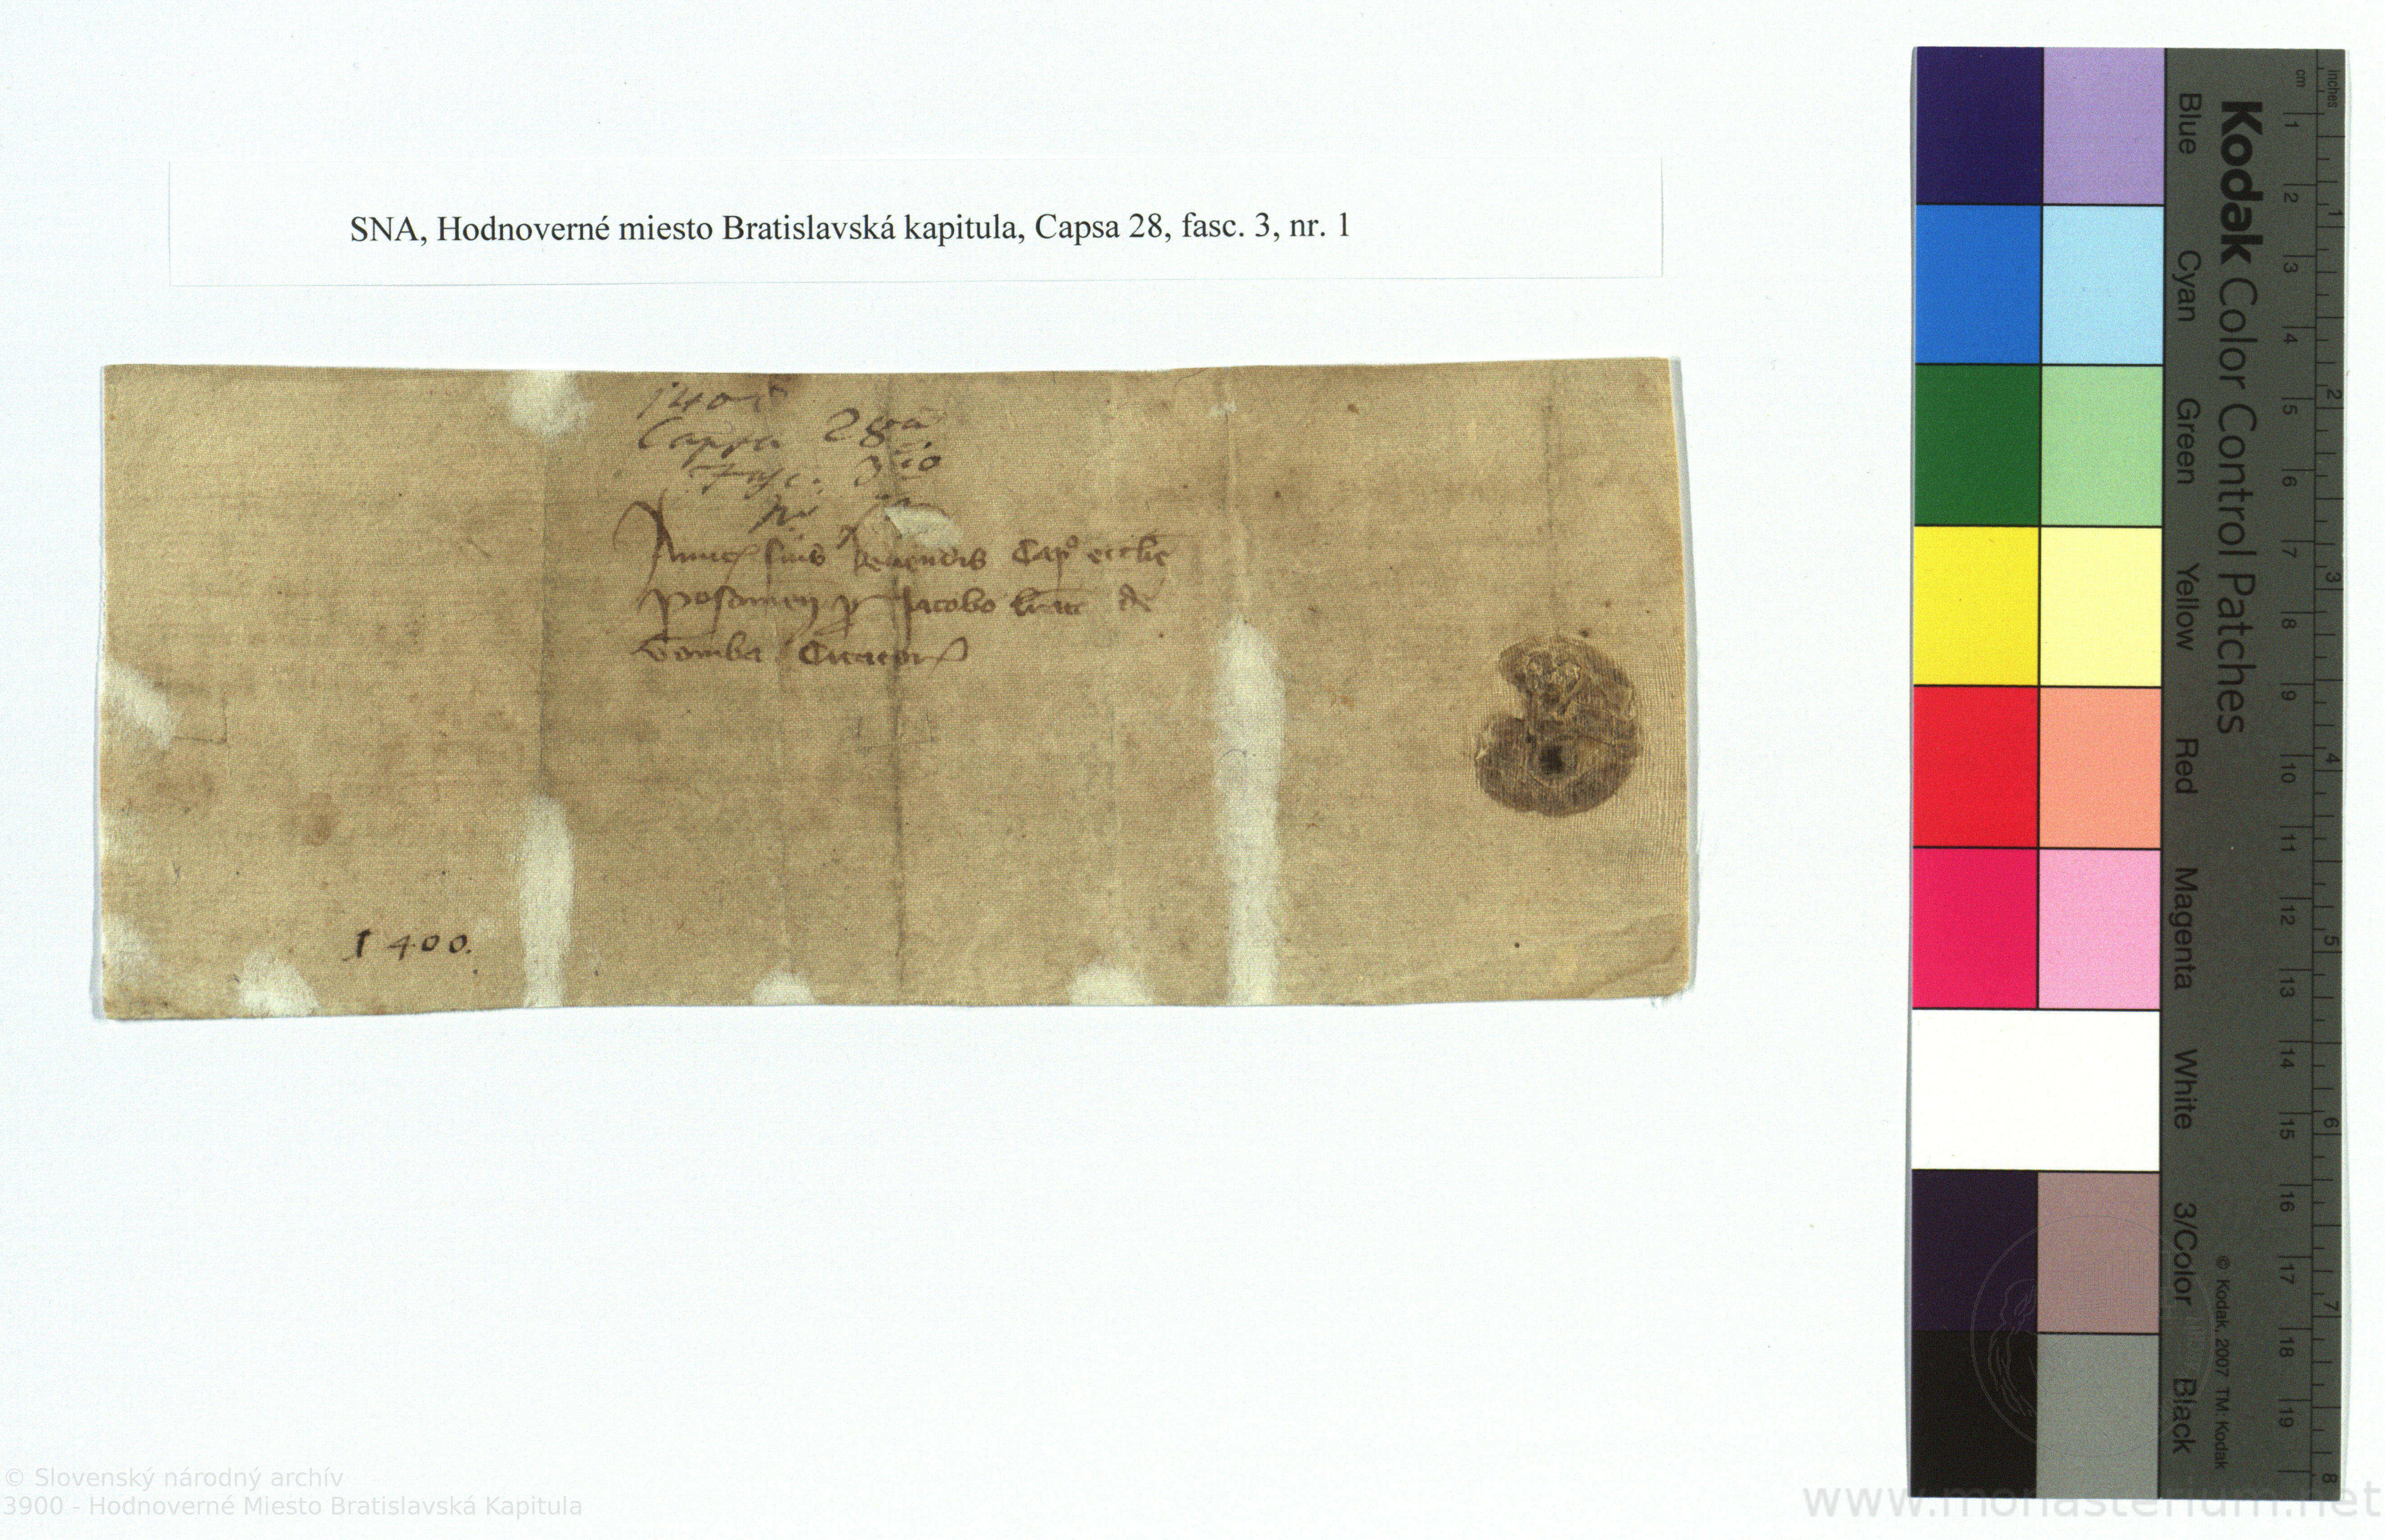 SNA, Hodnoverné miesto Bratislavská kapitula, Capsa 28, fasc. 3, nr. 1
140
Capsa 28va
Fasc. 3io
Nr
Amicis suis Reuendis Capo ecclie
Posonien p Jacobo lratt de
Vomba Citator
1400.
Kodak Color Control Patches
Blue Cyan Green Yellow Red Magenta White 3/Color Black
© Kodak, 2007 TM: Kodak
inches 1 2 3 4 5 6 7 8
cm 1 2 3 4 5 6 7 8 9 10 11 12 13 14 15 16 17 18 19
© Slovenský národný archív
3900 - Hodnoverné Miesto Bratislavská Kapitula
www.monasterium.net